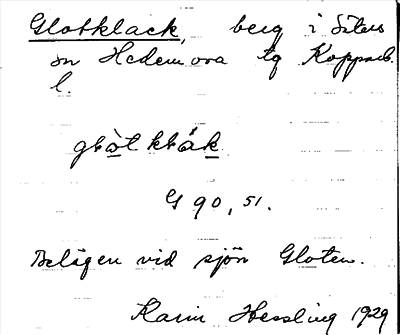 Glotklack, berg i Säters
sn Hedemora tg Kopparb.
l.
glo̱t kláḵ
G 90, 51.
Belägen vid sjön Gloten.
Karin Hessling 1929